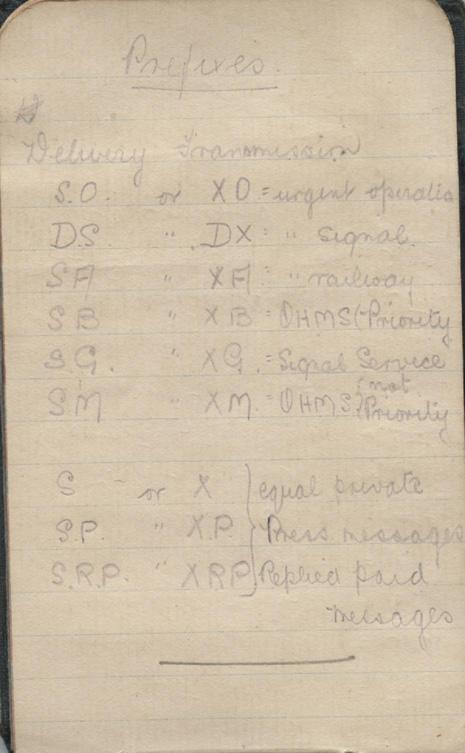 Prefixes.
Delivery Transmission
S.O. or XO = urgent operatio
DS " DX = " signal.
SA " XA = " railway
SB " XB = OHMS (Priority
S.G. " XG. = Signal Service
SM " XM. = OHMS (not Priority
S - or X } equal private
S.P. " X.P. } Press messages
S.R.P. " XRP } Replied paid
messages